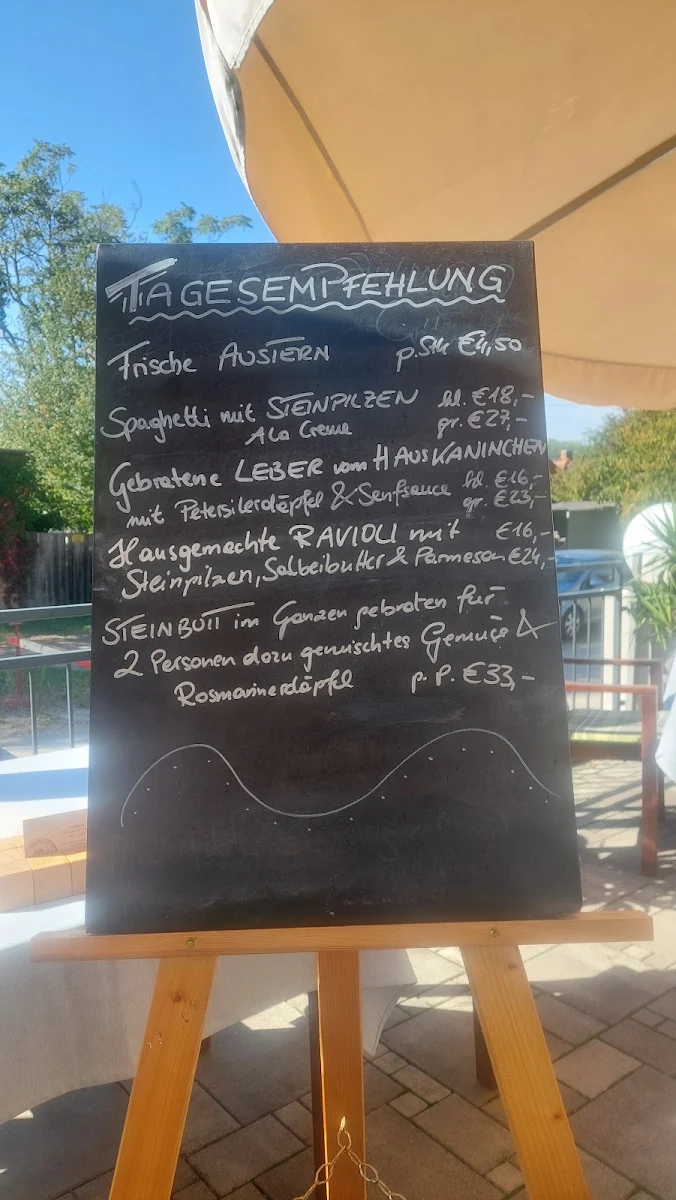 TAGESEMPFEHLUNG
Frische AUSTERN p. Stk €4,50
Spaghetti mit STEINPILZEN kl. €18,-
A La Creme gr. €27,-
Gebratene LEBER vom HAUSKANINCHEN
mit Petersilerdäpfel & Senfsauce kl. €16,-
gr. €23,-
Hausgemachte RAVIOLI mit €16,-
Steinpilzen, Salbeibutter & Parmesan €24,-
STEINBUTT im Ganzen gebraten für
2 Personen dazu gemischtes Gemüse &
Rosmarinerdäpfel p. P. €33,-